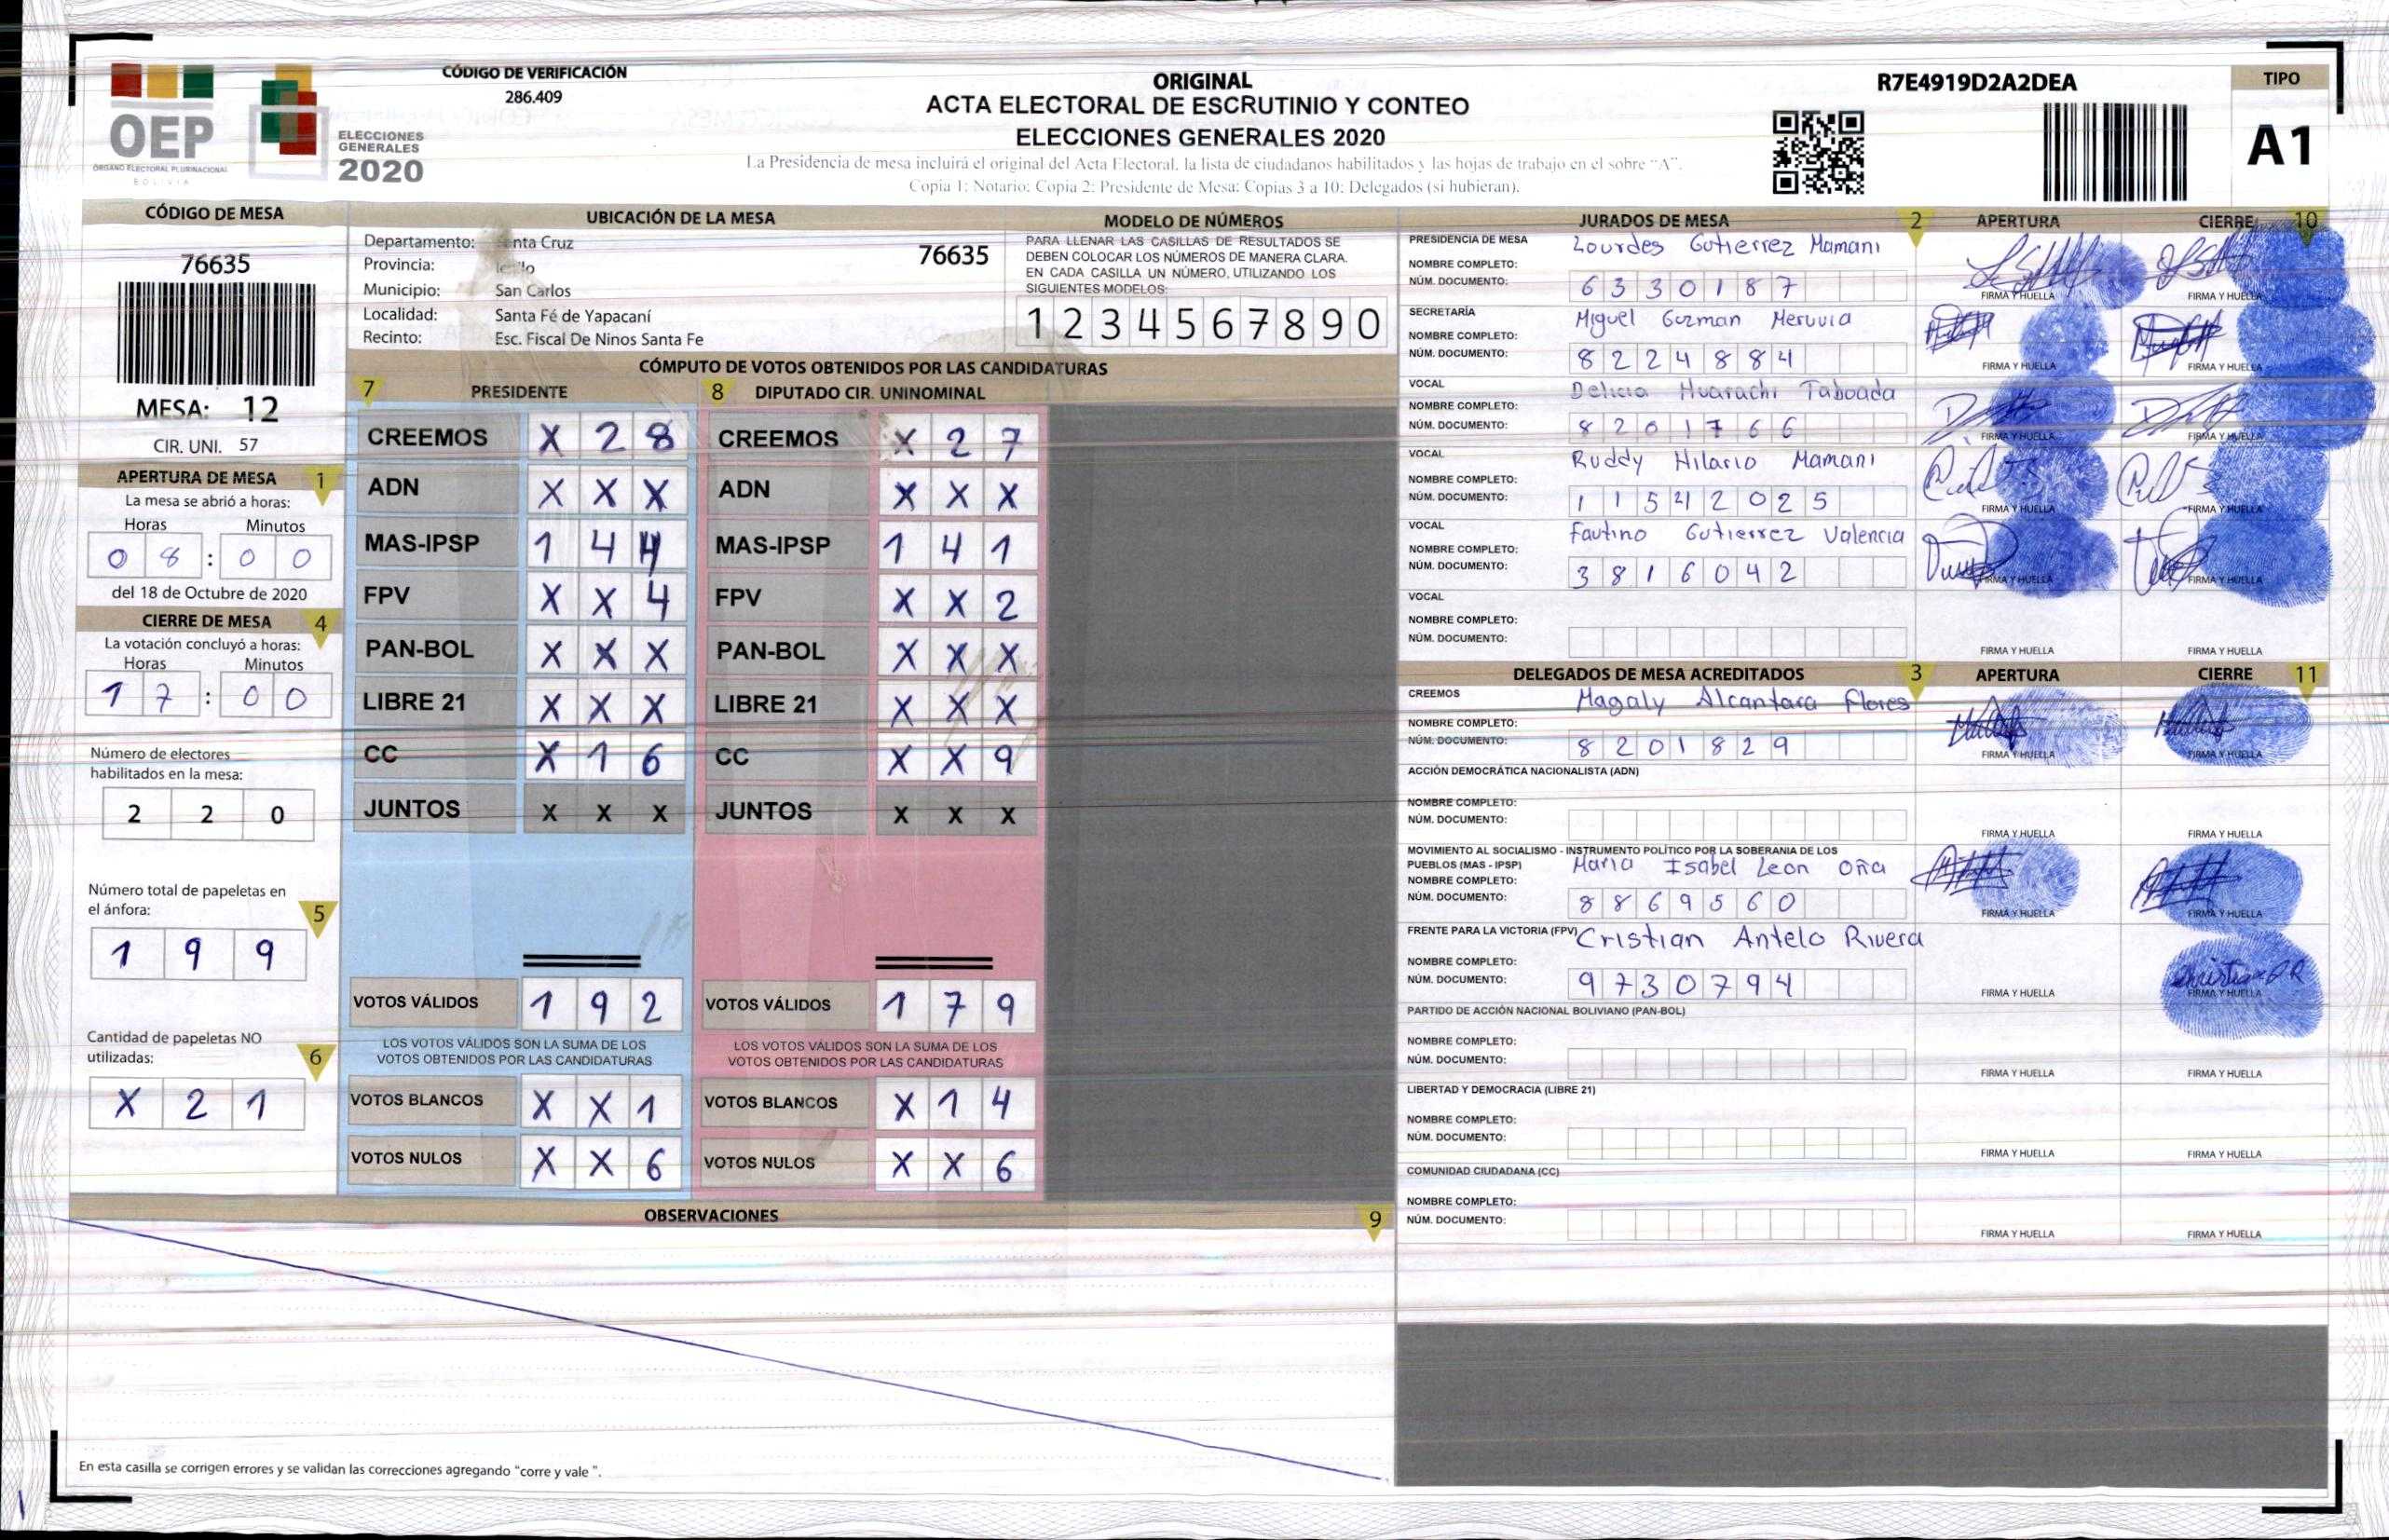 CÓDIGO DE VERIFICACIÓN
286.409
OEP
ÓRGANO ELECTORAL PLURINACIONAL
BOLIVIA
ELECCIONES
GENERALES
2020
ORIGINAL
ACTA ELECTORAL DE ESCRUTINIO Y CONTEO
ELECCIONES GENERALES 2020
La Presidencia de mesa incluirá el original del Acta Electoral, la lista de ciudadanos habilitados y las hojas de trabajo en el sobre "A".
Copia 1: Notario; Copia 2: Presidente de Mesa; Copias 3 a 10: Delegados (si hubieran).
R7E4919D2A2DEA
TIPO
A1
CÓDIGO DE MESA
76635
MESA: 12
CIR. UNI. 57
APERTURA DE MESA 1
La mesa se abrió a horas:
Horas Minutos
0 8 : 0 0
del 18 de Octubre de 2020
CIERRE DE MESA 4
La votación concluyó a horas:
Horas Minutos
1 7 : 0 0
Número de electores
habilitados en la mesa:
2 2 0
Número total de papeletas en
el ánfora: 5
1 9 9
Cantidad de papeletas NO
utilizadas: 6
X 2 1
UBICACIÓN DE LA MESA
Departamento: nta Cruz
76635
Provincia:
Municipio: San Carlos
Localidad: Santa Fé de Yapacaní
Recinto: Esc. Fiscal De Ninos Santa Fe
MODELO DE NÚMEROS
PARA LLENAR LAS CASILLAS DE RESULTADOS SE
DEBEN COLOCAR LOS NÚMEROS DE MANERA CLARA.
EN CADA CASILLA UN NÚMERO, UTILIZANDO LOS
SIGUIENTES MODELOS:
1 2 3 4 5 6 7 8 9 0
CÓMPUTO DE VOTOS OBTENIDOS POR LAS CANDIDATURAS
7 PRESIDENTE 8 DIPUTADO CIR. UNINOMINAL
CREEMOS X 2 8 CREEMOS X 2 7
ADN X X X ADN X X X
MAS-IPSP 1 4 4 MAS-IPSP 1 4 1
FPV X X 4 FPV X X 2
PAN-BOL X X X PAN-BOL X X X
LIBRE 21 X X X LIBRE 21 X X X
CC X 1 6 CC X X 9
JUNTOS X X X JUNTOS X X X
VOTOS VÁLIDOS 1 9 2 VOTOS VÁLIDOS 1 7 9
LOS VOTOS VÁLIDOS SON LA SUMA DE LOS LOS VOTOS VÁLIDOS SON LA SUMA DE LOS
VOTOS OBTENIDOS POR LAS CANDIDATURAS VOTOS OBTENIDOS POR LAS CANDIDATURAS
VOTOS BLANCOS X X 1 VOTOS BLANCOS X 1 4
VOTOS NULOS X X 6 VOTOS NULOS X X 6
OBSERVACIONES 9
En esta casilla se corrigen errores y se validan las correcciones agregando "corre y vale ".
JURADOS DE MESA 2 APERTURA CIERRE 10
PRESIDENCIA DE MESA
NOMBRE COMPLETO: Lourdes Gutierrez Mamani
NÚM. DOCUMENTO: 6 3 3 0 1 8 7
FIRMA Y HUELLA FIRMA Y HUELLA
SECRETARÍA
NOMBRE COMPLETO: Miguel Guzman Meruvia
NÚM. DOCUMENTO: 8 2 2 4 8 8 4
FIRMA Y HUELLA FIRMA Y HUELLA
VOCAL
NOMBRE COMPLETO: Delicia Huarachi Taboada
NÚM. DOCUMENTO: 8 2 0 1 7 6 6
FIRMA Y HUELLA FIRMA Y HUELLA
VOCAL
NOMBRE COMPLETO: Ruddy Hilario Mamani
NÚM. DOCUMENTO: 1 1 5 4 2 0 2 5
FIRMA Y HUELLA FIRMA Y HUELLA
VOCAL
NOMBRE COMPLETO: Fautino Gutierrez Valencia
NÚM. DOCUMENTO: 3 8 1 6 0 4 2
FIRMA Y HUELLA FIRMA Y HUELLA
VOCAL
NOMBRE COMPLETO:
NÚM. DOCUMENTO:
FIRMA Y HUELLA FIRMA Y HUELLA
DELEGADOS DE MESA ACREDITADOS 3 APERTURA CIERRE 11
CREEMOS
NOMBRE COMPLETO: Magaly Alcantara Flores
NÚM. DOCUMENTO: 8 2 0 1 8 2 9
FIRMA Y HUELLA FIRMA Y HUELLA
ACCIÓN DEMOCRÁTICA NACIONALISTA (ADN)
NOMBRE COMPLETO:
NÚM. DOCUMENTO:
FIRMA Y HUELLA FIRMA Y HUELLA
MOVIMIENTO AL SOCIALISMO - INSTRUMENTO POLÍTICO POR LA SOBERANIA DE LOS
PUEBLOS (MAS - IPSP)
NOMBRE COMPLETO: Maria Isabel Leon Oña
NÚM. DOCUMENTO: 8 8 6 9 5 6 0
FIRMA Y HUELLA FIRMA Y HUELLA
FRENTE PARA LA VICTORIA (FPV)
NOMBRE COMPLETO: Cristian Antelo Rivera
NÚM. DOCUMENTO: 9 7 3 0 7 9 4
FIRMA Y HUELLA FIRMA Y HUELLA
PARTIDO DE ACCIÓN NACIONAL BOLIVIANO (PAN-BOL)
NOMBRE COMPLETO:
NÚM. DOCUMENTO:
FIRMA Y HUELLA FIRMA Y HUELLA
LIBERTAD Y DEMOCRACIA (LIBRE 21)
NOMBRE COMPLETO:
NÚM. DOCUMENTO:
FIRMA Y HUELLA FIRMA Y HUELLA
COMUNIDAD CIUDADANA (CC)
NOMBRE COMPLETO:
NÚM. DOCUMENTO:
FIRMA Y HUELLA FIRMA Y HUELLA